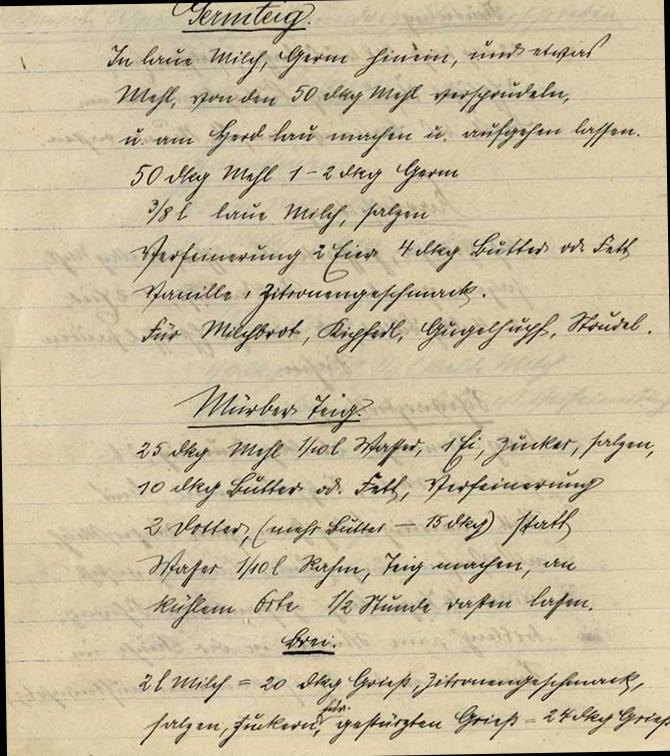 Germteig.
In laue Milch, Germ hinein, und etwas
Mehl, von den 50 dkg Mehl versprudeln,
u. am Herd lau machen u. aufgehen lassen.
50 dkg Mehl 1-2 dkg Germ
3/8 l laue Milch, salzen
Verfeinerung 2 Eier 4 dkg Butter od. Fett
Vanille, Zitronengeschmack.
Für Milchbrot, Kipferl, Gugelhupf, Strudel.
Mürber Teig.
25 dkg Mehl 1/10 l Wasser, 1 Ei, Zucker, salzen,
10 dkg Butter od. Fett, Verfeinerung
2 Dotter, (mehr Butter – 15 dkg) statt
Wasser 1/10 l Rahm, Teig machen, an
kühlem Orte 1/2 Stunde rasten lassen.
Brei.
2 l Milch = 20 dkg Grieß, Zitronengeschmack,
salzen, zuckern, für gestürzten Grieß = 24 dkg Grieß